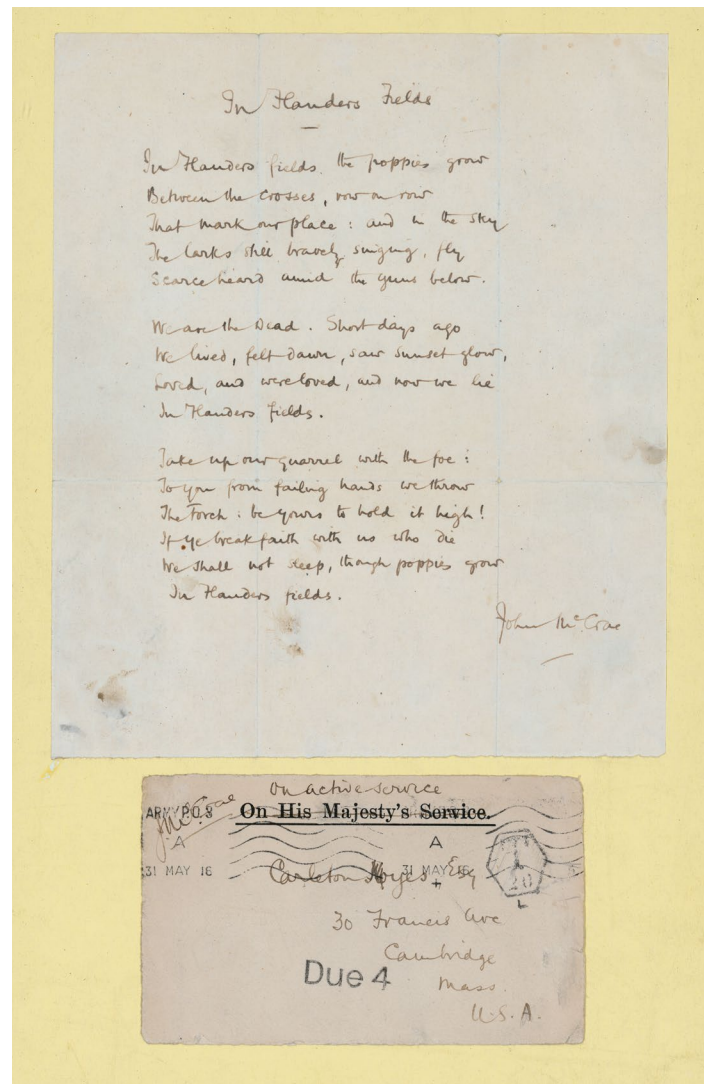 In Flanders Fields
In Flanders fields the poppies grow
Between the crosses, row on row
That mark our place : and in the sky
The larks still bravely singing, fly
Scarce heard amid the guns below.
We are the Dead. Short days ago
We lived, felt dawn, saw sunset glow,
Loved, and were loved, and now we lie
In Flanders fields.
Take up our quarrel with the foe :
To you from failing hands we throw
The Torch : be yours to hold it high!
If ye break faith with us who die
We shall not sleep, though poppies grow
In Flanders fields.
John McCrae
on active service
ARMY P.O. 3
On His Majesty's Service.
J McCrae
A A
31 MAY 16 31 MAY 16
T
20
L
Carleton Noyes Esq
30 Francis Ave
Cambridge
Due 4
Mass.
U.S.A.